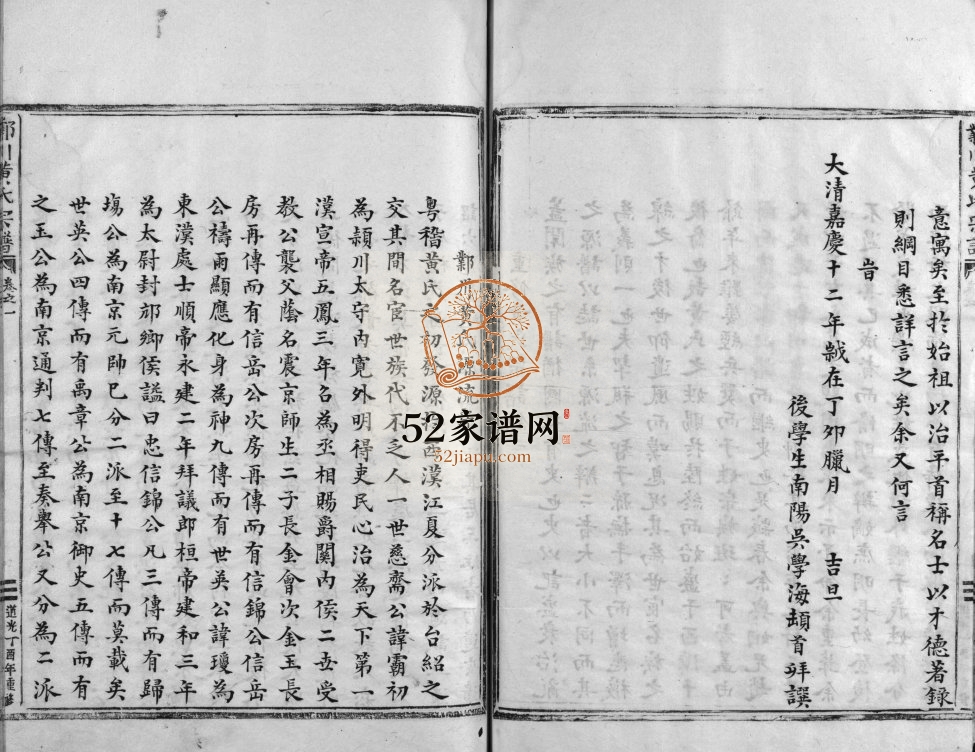 意寓矣至於始祖以治平首稱名士以才德著錄
則綱目悉詳言之矣余又何言
旹
大清嘉慶十二年歲在丁卯臘月 吉旦
後學生南陽吳學海頓首拜譔
鄴川黃氏源流
粵稽黃氏之初發源 西漢江夏分派於台紹之
交其間名宦世族代不乏人一世慈齋公諱霸初
為潁川太守內寬外明得吏民心治為天下第一
漢宣帝五鳳三年名為丞相賜爵關內侯二世受
教公襲父蔭名震京師生二子長金會次金玉長
房再傳而有信岳公次房再傳而有信錦公信岳
公禱雨顯應化身為神九傳而有世英公諱瓊為
東漢處士順帝永建二年拜議郎桓帝建和三年
為太尉封邟鄉侯諡曰忠信錦公凡三傳而有歸
塲公為南京元帥巳分二派至十七傳而莫載矣
世英公四傳而有禹章公為南京御史五傳而有
之玉公為南京通判七傳至奏舉公又分為二派
川黃氏宗譜 卷之一
道光丁酉年重修
52家谱网
52jiapu.com